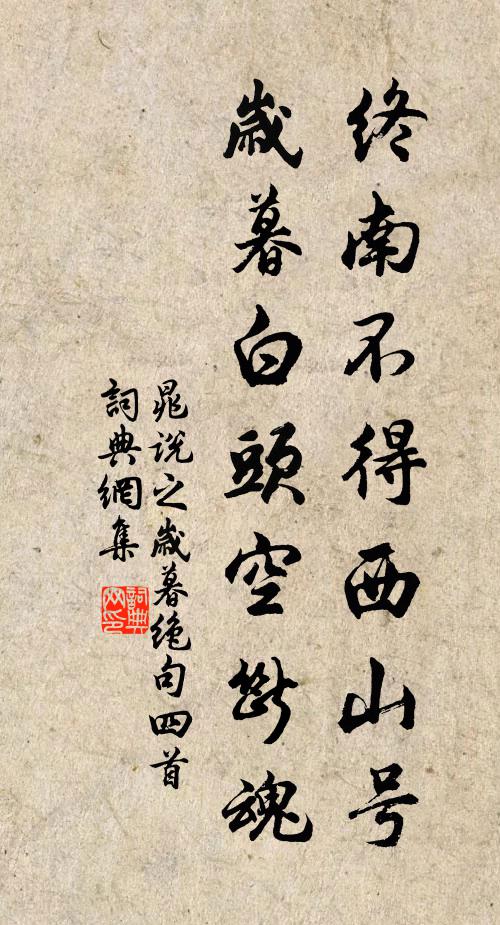 終南不得西山号
歲暮白頭空斷魂
晁說之歲暮絕句四首
詞典網集
詞典
网印